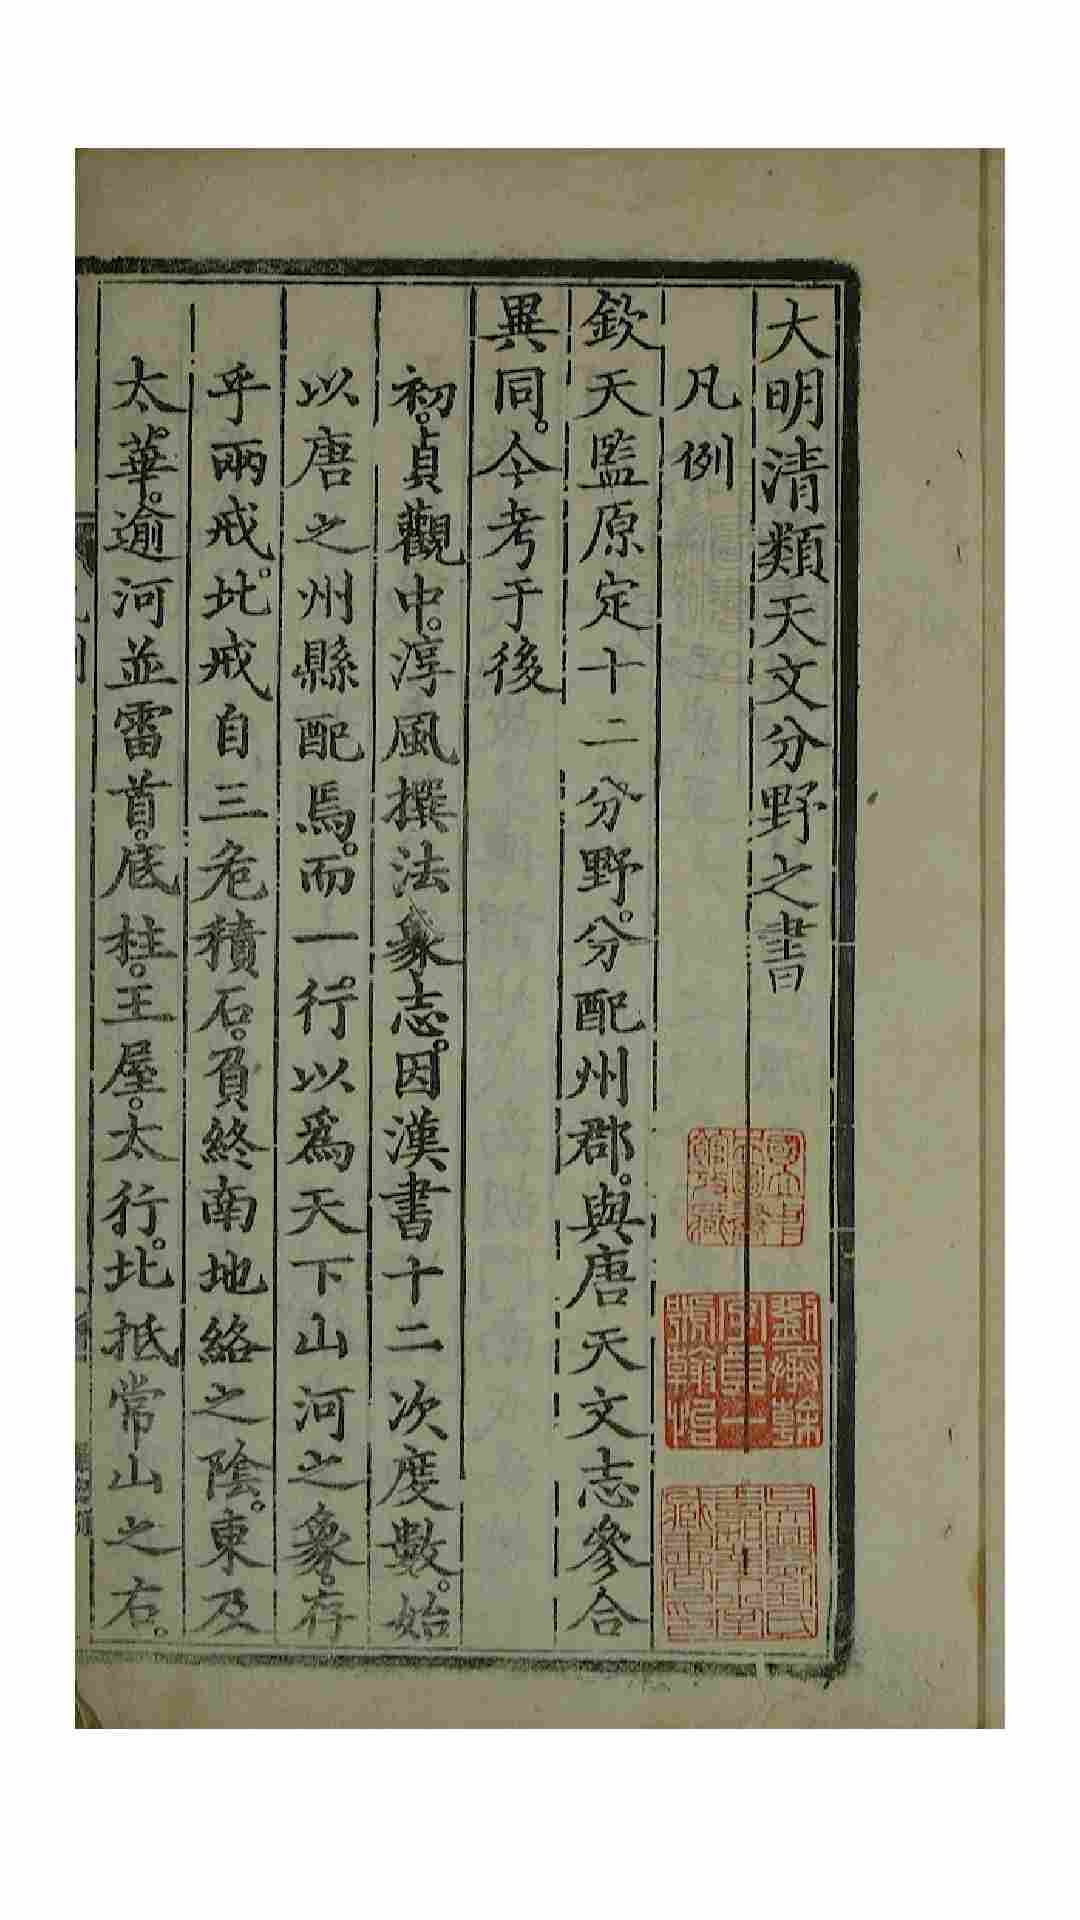 大明清類天文分野之書
凡例
欽天監原定十二分野。分配州郡。與唐天文志參合
異同。今考于後
初。貞觀中。淳風撰法象志。因漢書十二次度數。始
以唐之州縣配焉。而一行以爲天下山河之象。存
乎兩戒。北戒自三危積石。負終南地絡之陰。東及
太華。逾河並雷首。底柱。王屋。太行。北抵常山之右。
劉承幹
字貞一
號翰怡
吳興劉氏
嘉業堂
藏書記